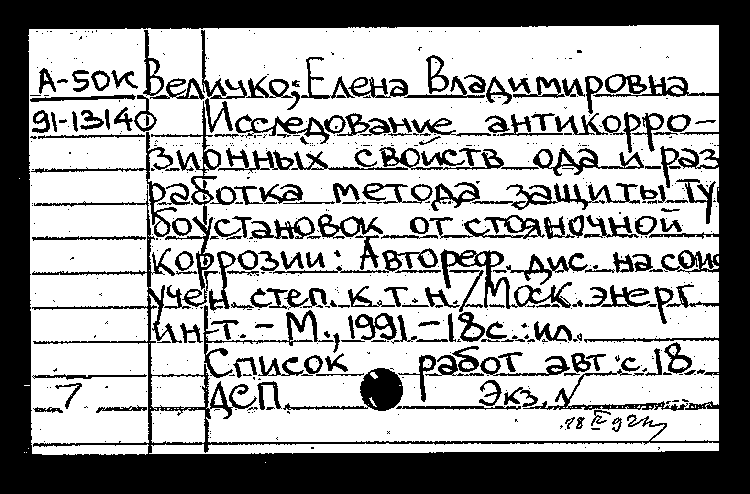 А-50К Величко, Елена Владимировна
91-13140 Исследование антикорро-
зионных свойств ода и раз
работка метода защиты ту
боустановок от стояночной
коррозии: Автореф. дис. на соис
учен. степ. к.т.н./Моск. энерг
ин-т. - М., 1991. - 18с.:ил.
Список работ авт.: с.18
7 ДСП. Экз. N
18 IV 92